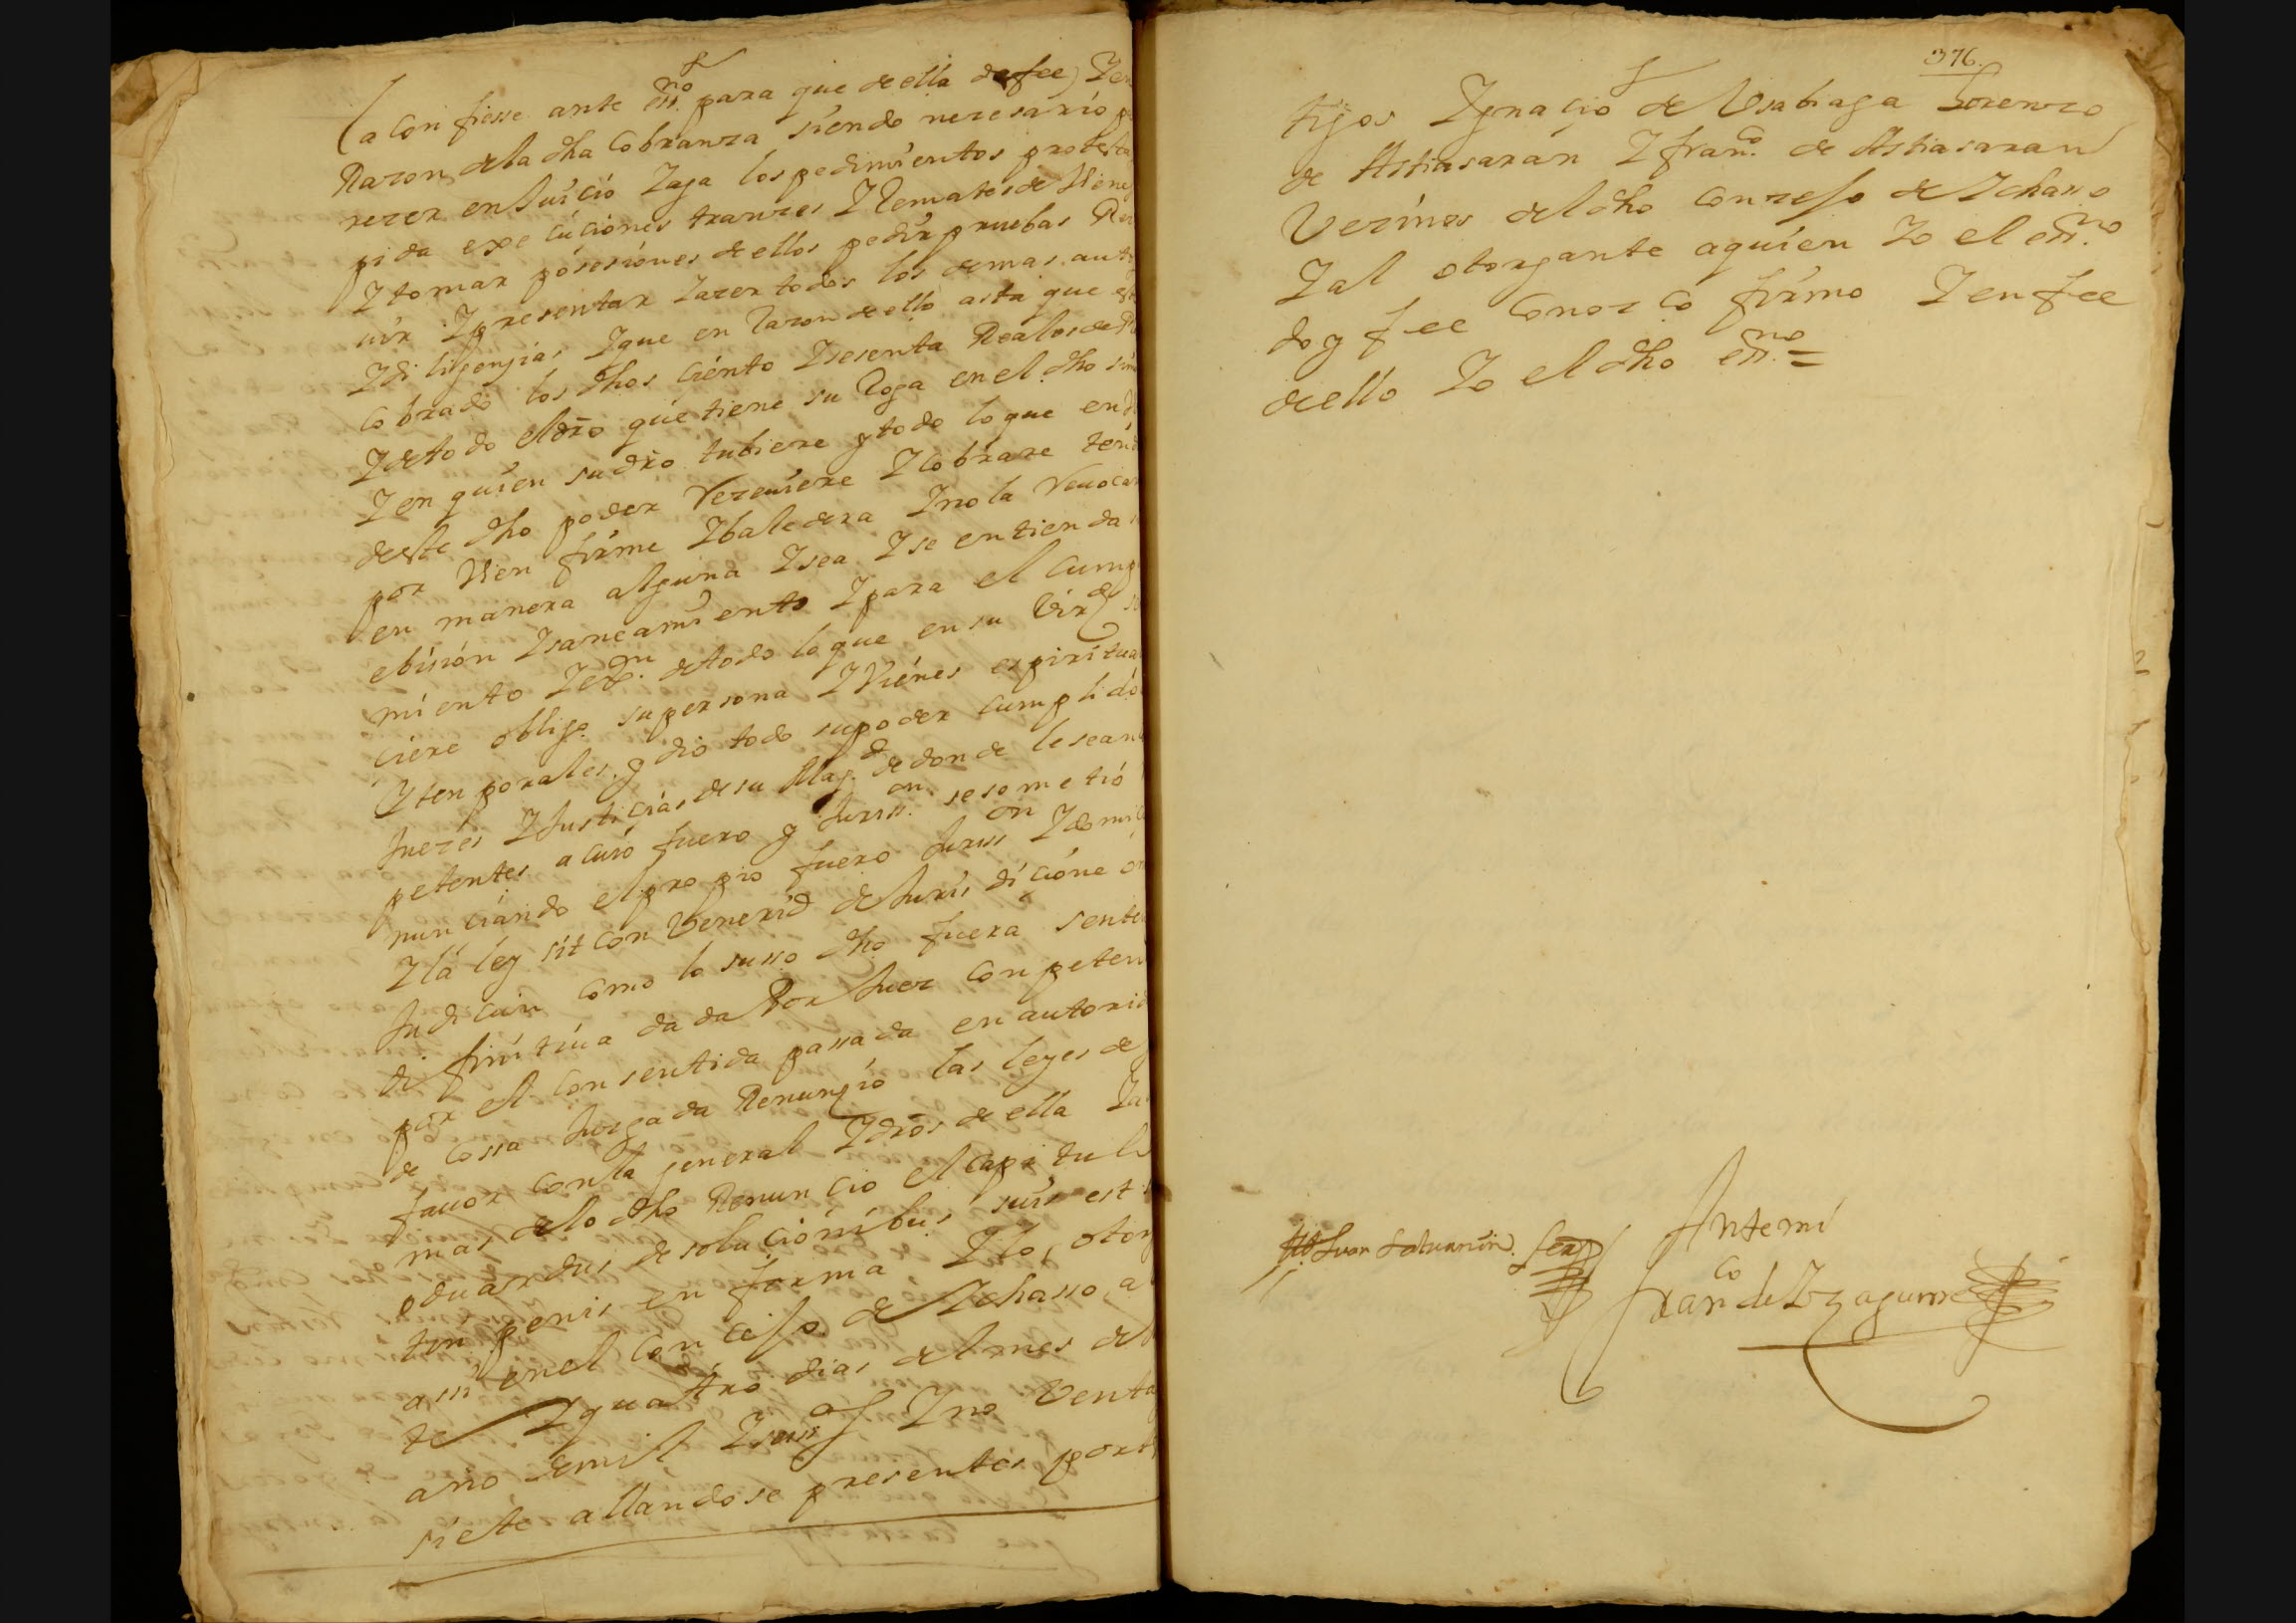 la confiesse ante essno para que de ella de fee, Y en
Razon dela dha Cobranza siendo nezesario
rezer en Juicio Y aga los pedimientos protesta
pida execuciones tranzes Y Remates de Vienes
Y tomar posesiones de ellos pedir pruebas
uir Y presentar Y azer todos los demas auto
Y diligençias Y que en Razon de ello asta que
Cobrado los dhos Ciento Y sesenta Reales de
Y de todo el dro que tiene su Voga en el dho
Y en quien su dro tubiere y todo lo que en
deste dho poder Rezeuiere Y Cobrare
por Vien firme Y baledera Y no la Reuocar
en manera alguna Y sea Y se entienda
ebision Y saneamiento Y para el Cump
miento Y exon. de todo lo que en su Vird
Ciere obligo su persona Y Vienes espiritua
Y tenporales. y dio todo su poder Cumplido
Juezes Y Justiçias de su Magd. de donde le sean
petentes a Cuio fuero y Jurisson. se sometio
nunciando el propio fuero Jurisson Y domi
Y la ley sit Con Venerid de Juris diçione
Judicun Como lo susso dho fuera sente
difinitiua dada Por Juez Conpeten
por el Consentida passada en autorid
de Cossa Juzgada Renunçio las leyes de
fauor Con la general Y dros de ella Y a
mas de lo dho Renunçio el Capitulo
oduardus de soluçionibus suis est
ten penis en forma Y lo, otorg
assi en el Conçejo de Ychasso, a
te Y quatro dias del mes de
año de mil Y seiss Y noventa
siete allandose presentes por t
376.
tigos Ygnaçio de Usabiaga Lorenzo
de Astiasaran Y franco. de Astiasaran
Vezinos del dho Conzejo de Ychasso
Y al otorgante aquien Yo el essno
doy fee Conozco firmo Y en fee
de ello Yo el dho essno =
Juan Saturnin.
Antemi
Franco de Yzaguirre